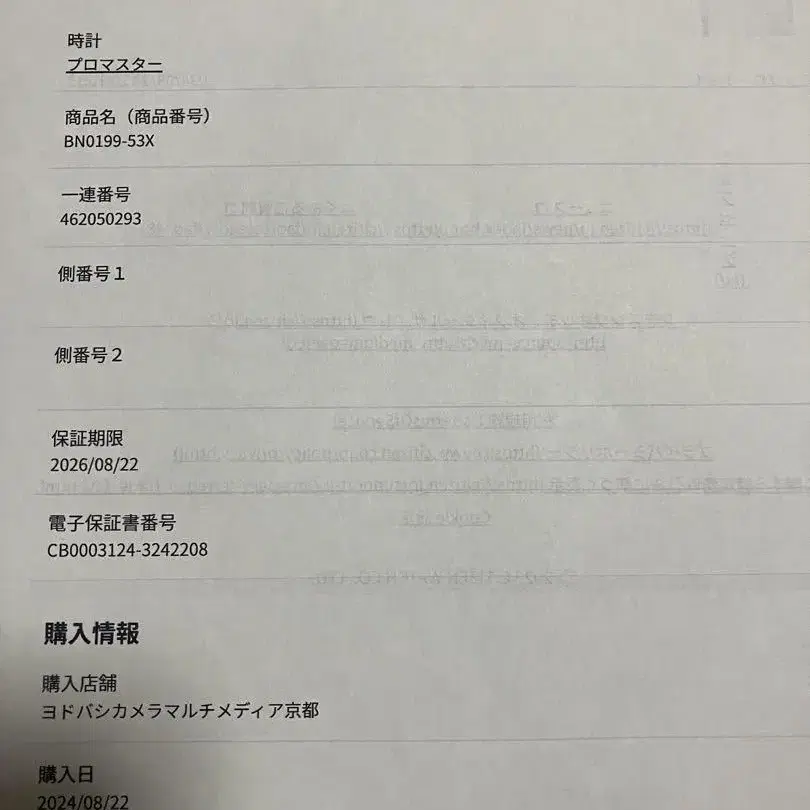 時計
プロマスター
商品名（商品番号）
BN0199-53X
一連番号
462050293
側番号１
側番号２
保証期限
2026/08/22
電子保証書番号
CB0003124-3242208
購入情報
購入店舗
ヨドバシカメラマルチメディア京都
購入日
2024/08/22